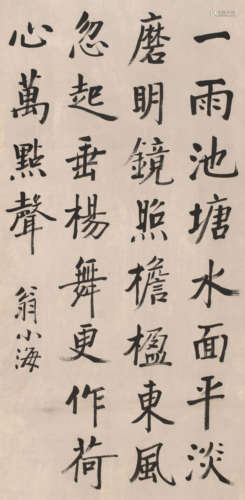 一雨池塘水面平淡
磨明鏡照檐楹東風
忽起垂楊舞更作荷
心萬點聲
翁小海